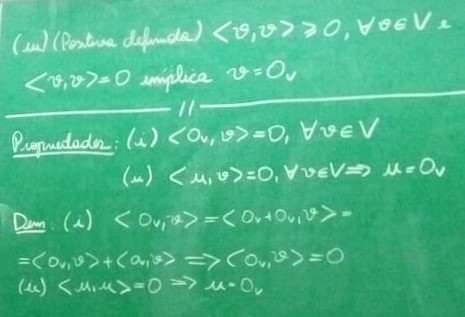 (iii) (Positiva definida) <v,v> ≥ 0, ∀ v ∈ V e
<v,v> = 0 implica v = 0ᵥ
//
Propriedades: (i) <0ᵥ, v> = 0, ∀ v ∈ V
(ii) <u,v> = 0, ∀ v ∈ V ⇒ u = 0ᵥ
Dem: (i) <0ᵥ,v> = <0ᵥ+0ᵥ,v> =
= <0ᵥ,v> + <0ᵥ,v> ⇒ <0ᵥ,v> = 0
(ii) <u,u> = 0 ⇒ u = 0ᵥ